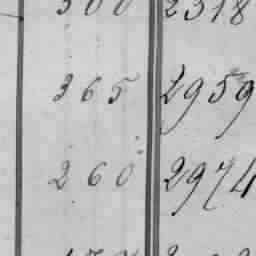 300 2318
365 2959
260 2974